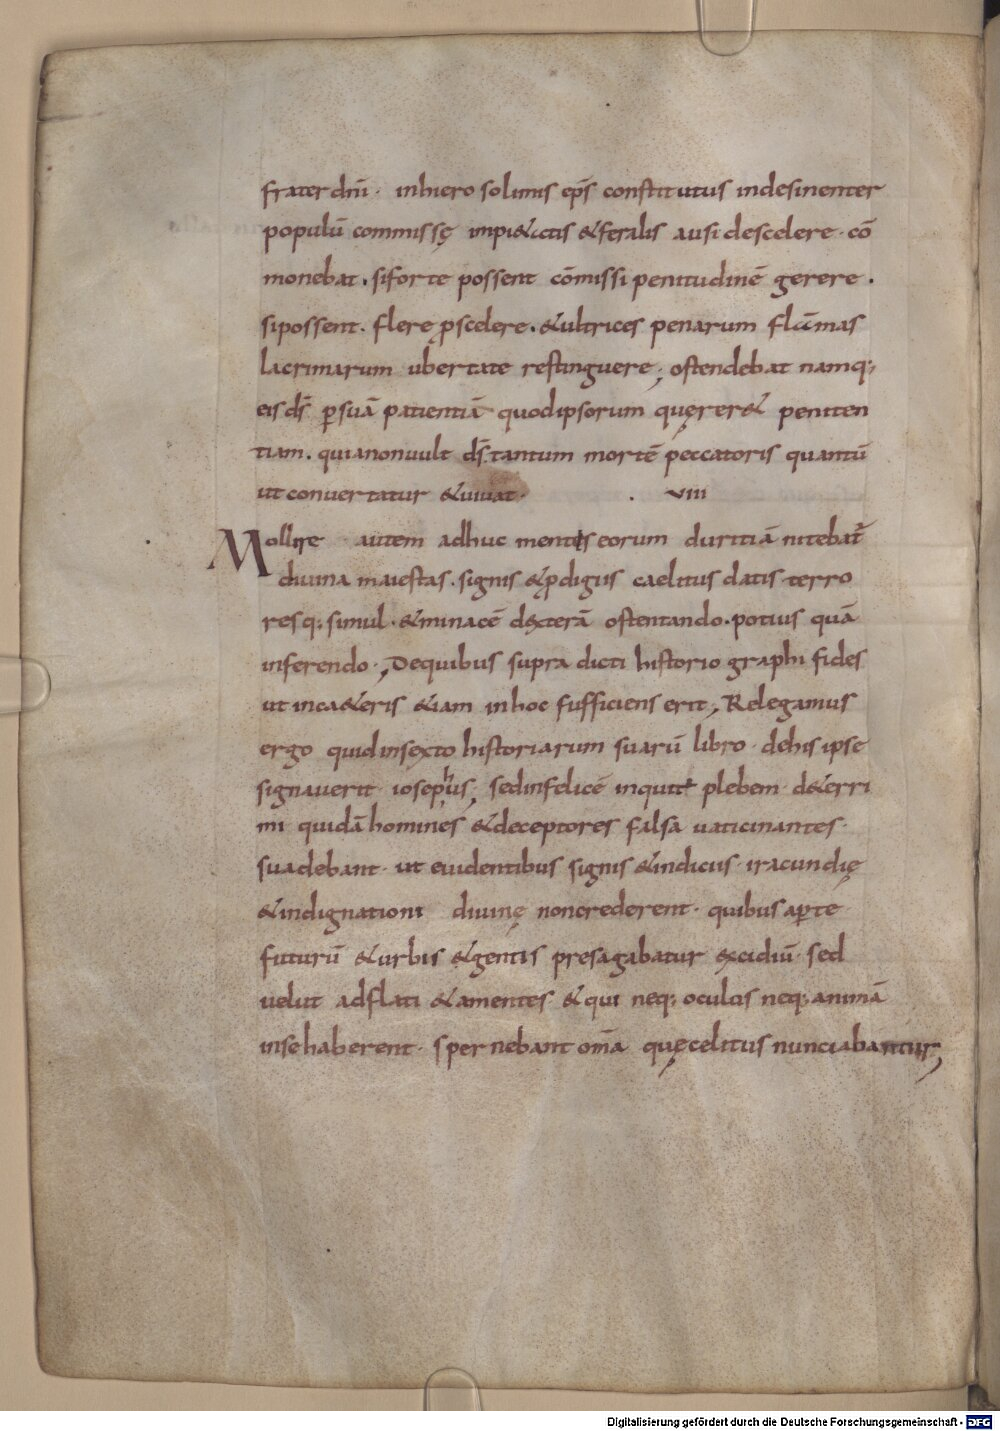 frater dnī · inhiero solimis ep̄s constitutus indesinenter
populū commissę impi&atis &feralis ausi descelere · cō
monebat · siforte possent cōmissi penitudinē gerere ·
sipossent · flere ꝓscelere · &ultrices penarum flāmas
lacrimarum ubertate restinguere; ostendebat namq;
eis ds̄ ꝑsuā patientiā quodipsorum quęrer& peniten
tiam · quianonuult ds̄ tantum mortē peccatoris quantū
ut conuertatur &uiuat · · VIII
Mollire autem adhuc mentis eorum duritiā nitebat̄
diuina maiestas · signis &ꝓdigiis caelitus datis · terro
resq; simul · &minacē dexterā ostentando · potius quā
inferendo · Dequibus supra dicti historio graphi fides
ut inca&eris &iam inhoc sufficiens erit; Relegamus
ergo quidinsexto historiarum suarū libro · dehis ipse
signauerit iosephus; sedinfelicē inquit plebem d&erri
mi quidā homines &deceptores falsa uaticinantes ·
suadebant · ut euidentibus signis &indiciis · iracundię
&indignationi diuinę noncrederent · quibus aꝑte
futurū &urbis &gentis presagabatur excidiū · sed
uelut adflati &amentes &qui neq; oculos neq; animā
insehaberent · spernebant om̄a quęcelitus nunciabantur;
Digitalisierung gefördert durch die Deutsche Forschungsgemeinschaft - DFG